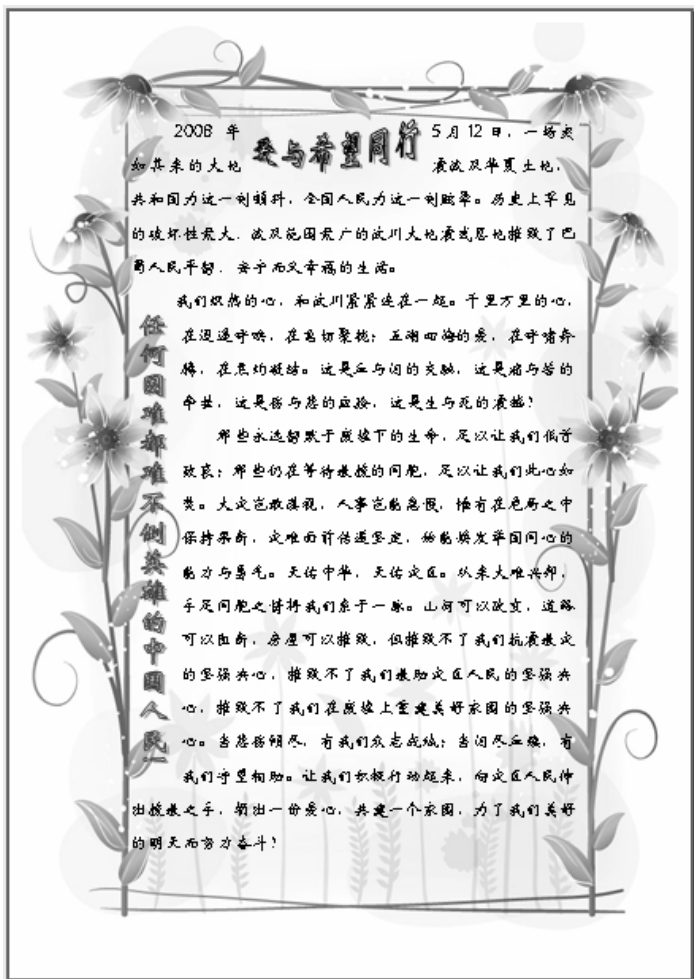 爱与希望同行
2008 年 5月12日，一场突
如其来的大地震波及华夏土地，
共和国为这一刻倾斜，全国人民为这一刻眩晕。历史上罕见
的破坏性最大、波及范围最广的汶川大地震或恩地摧毁了巴
蜀人民平静、安宁而又幸福的生活。
我们炽热的心，和汶川紧紧连在一起。千里万里的心，
在迢遥呼唤，在急切聚拢；五湖四海的爱，在呼啸奔
腾，在焦灼凝结。这是血与泪的交融，这是痛与苦的
命题，这是伤与悲的应接，这是生与死的震撼！
那些永远静默于废墟下的生命，足以让我们低首
致哀；那些仍在等待救援的同胞，足以让我们忧心如
焚。大灾岂敢漠视，人事岂能怠慢，惟有在危局之中
保持果断，灾难面前传递坚定，始能焕发举国同心的
能力与勇气。天佑中华，天佑灾区。从来大难兴邦，
手足同胞之情将我们系于一脉。山河可以改变，道路
可以阻断，房屋可以摧毁，但摧毁不了我们抗震救灾
的坚强决心，摧毁不了我们救助灾区人民的坚强决
心，摧毁不了我们在废墟上重建美好家园的坚强决
心。当悲伤朝尽，有我们众志成城；当泪尽血竭，有
我们守望相助。让我们积极行动起来，向灾区人民伸
出援救之手，献出一份爱心，共建一个家园，为了我们美好
的明天而努力奋斗！
任何困难都难不倒英雄的中国人民